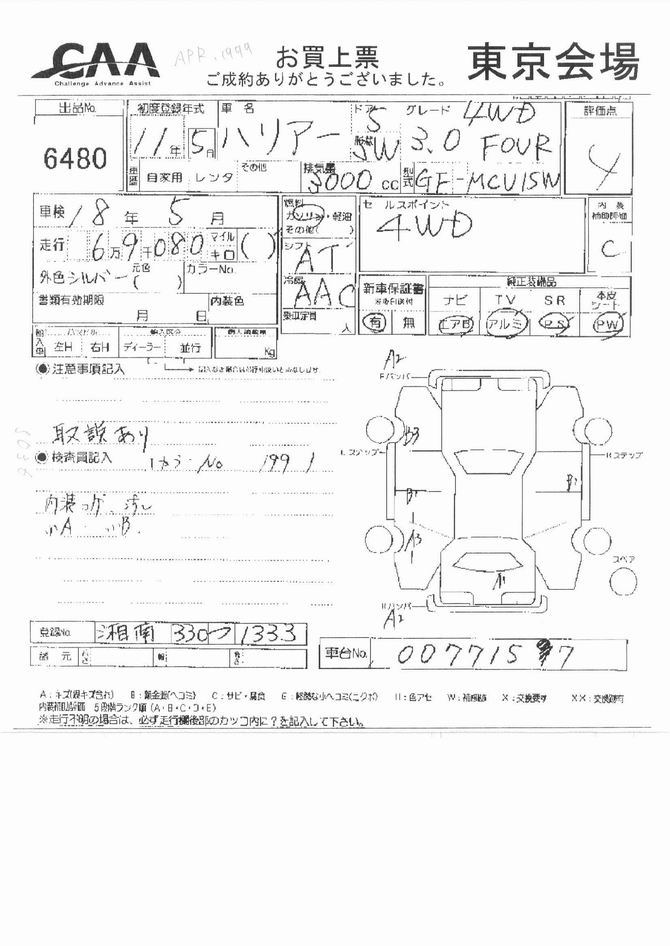 CAA
Challenge Advance Assist
APR. 1999
お買上票
ご成約ありがとうございました。
東京会場
出品No.
6480
初度登録年式
11年 5月
車名
ハリアー
ドア
5
グレード
4WD
3.0 FOUR
形状
5W
評価点
4
車歴
自家用 レンタ
その他
排気量
3000 cc
型式
GF-MCU15W
車検
18年 5月
走行
6万9千080
マイル
キロ
( )
外色 シルバー
元色
( )
カラーNo.
書類有効期限
月 日
内装色
燃料
ガソリン・軽油
その他( )
シフト
AT
冷房
AAC
乗車定員
人
セールスポイント
4WD
内装
補助評価
C
新車保証書
有 無
純正装備品
ナビ TV SR 本皮シート
エアB アルミ PS PW
輸入車
左H 右H
輸入区分
ディーラー 並行
Kg
●注意事項記入
取説あり
●検査員記入
カラーNo 199
内装コゲ、汚レ
小A 小B
A2
Fバンパ
Lステップ
Rステップ
B3
B1
B1
A3
A1
スペア
Rバンパ
A2
登録No.
湘南 330 つ 1333
諸元
長さ
幅
高さ
車台No.
0077157
A：キズ(線キズ含む) B：鈑金跡(ヘコミ) C：サビ・腐食 E：軽微な小ヘコミ(エクボ) H：色アセ W：補修跡 X：交換要す XX：交換跡有
内装補助評価 5段階ランク順(A・B・C・D・E)
※走行不明の場合は、必ず走行欄後部のカッコ内に？を記入して下さい。